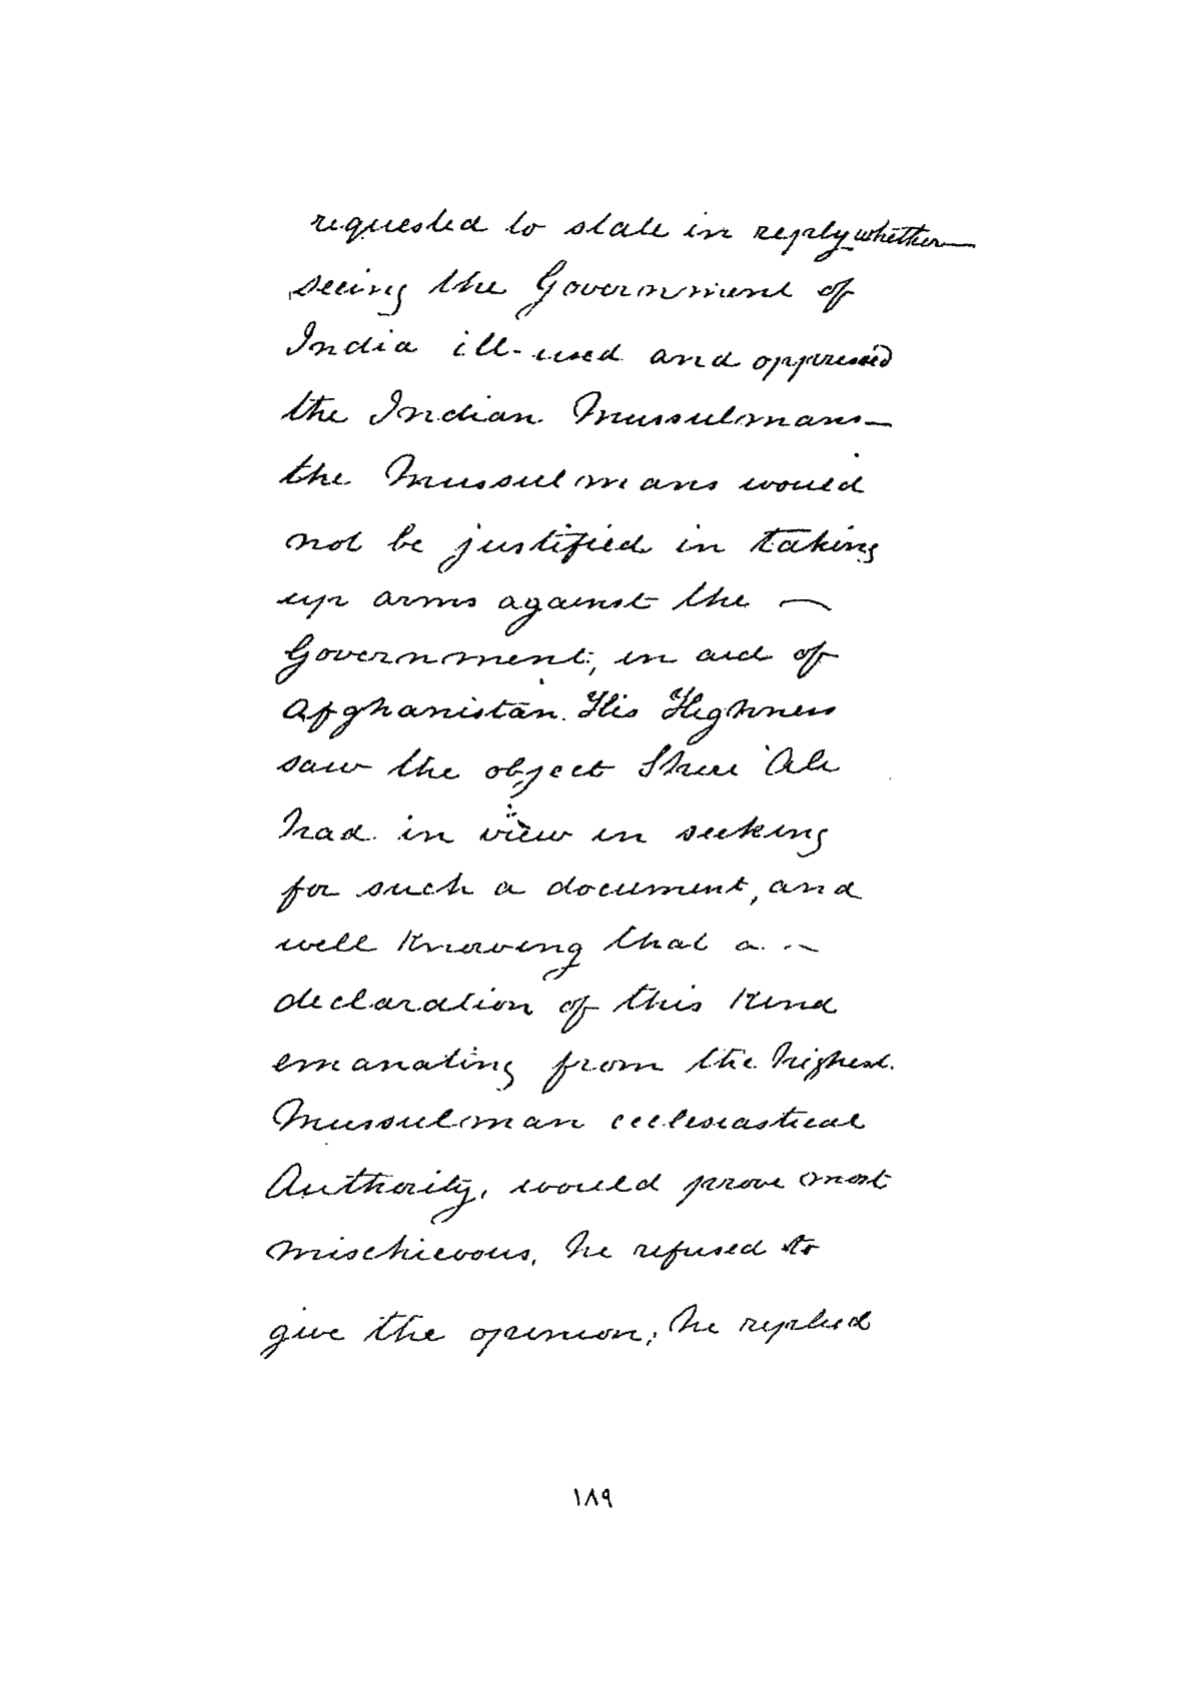 requested to state in reply whether—
seeing the Government of
India ill-used and oppressed
the Indian Mussulmans—
the Mussulmans would
not be justified in taking
up arms against the —
Government, in aid of
Afghanistan. His Highness
saw the object Shere Ali
had in view in seeking
for such a document, and
well knowing that a —
declaration of this kind
emanating from the highest
Mussulman ecclesiastical
Authority, would prove most
mischievous, he refused to
give the opinion; he replied
١٨٩